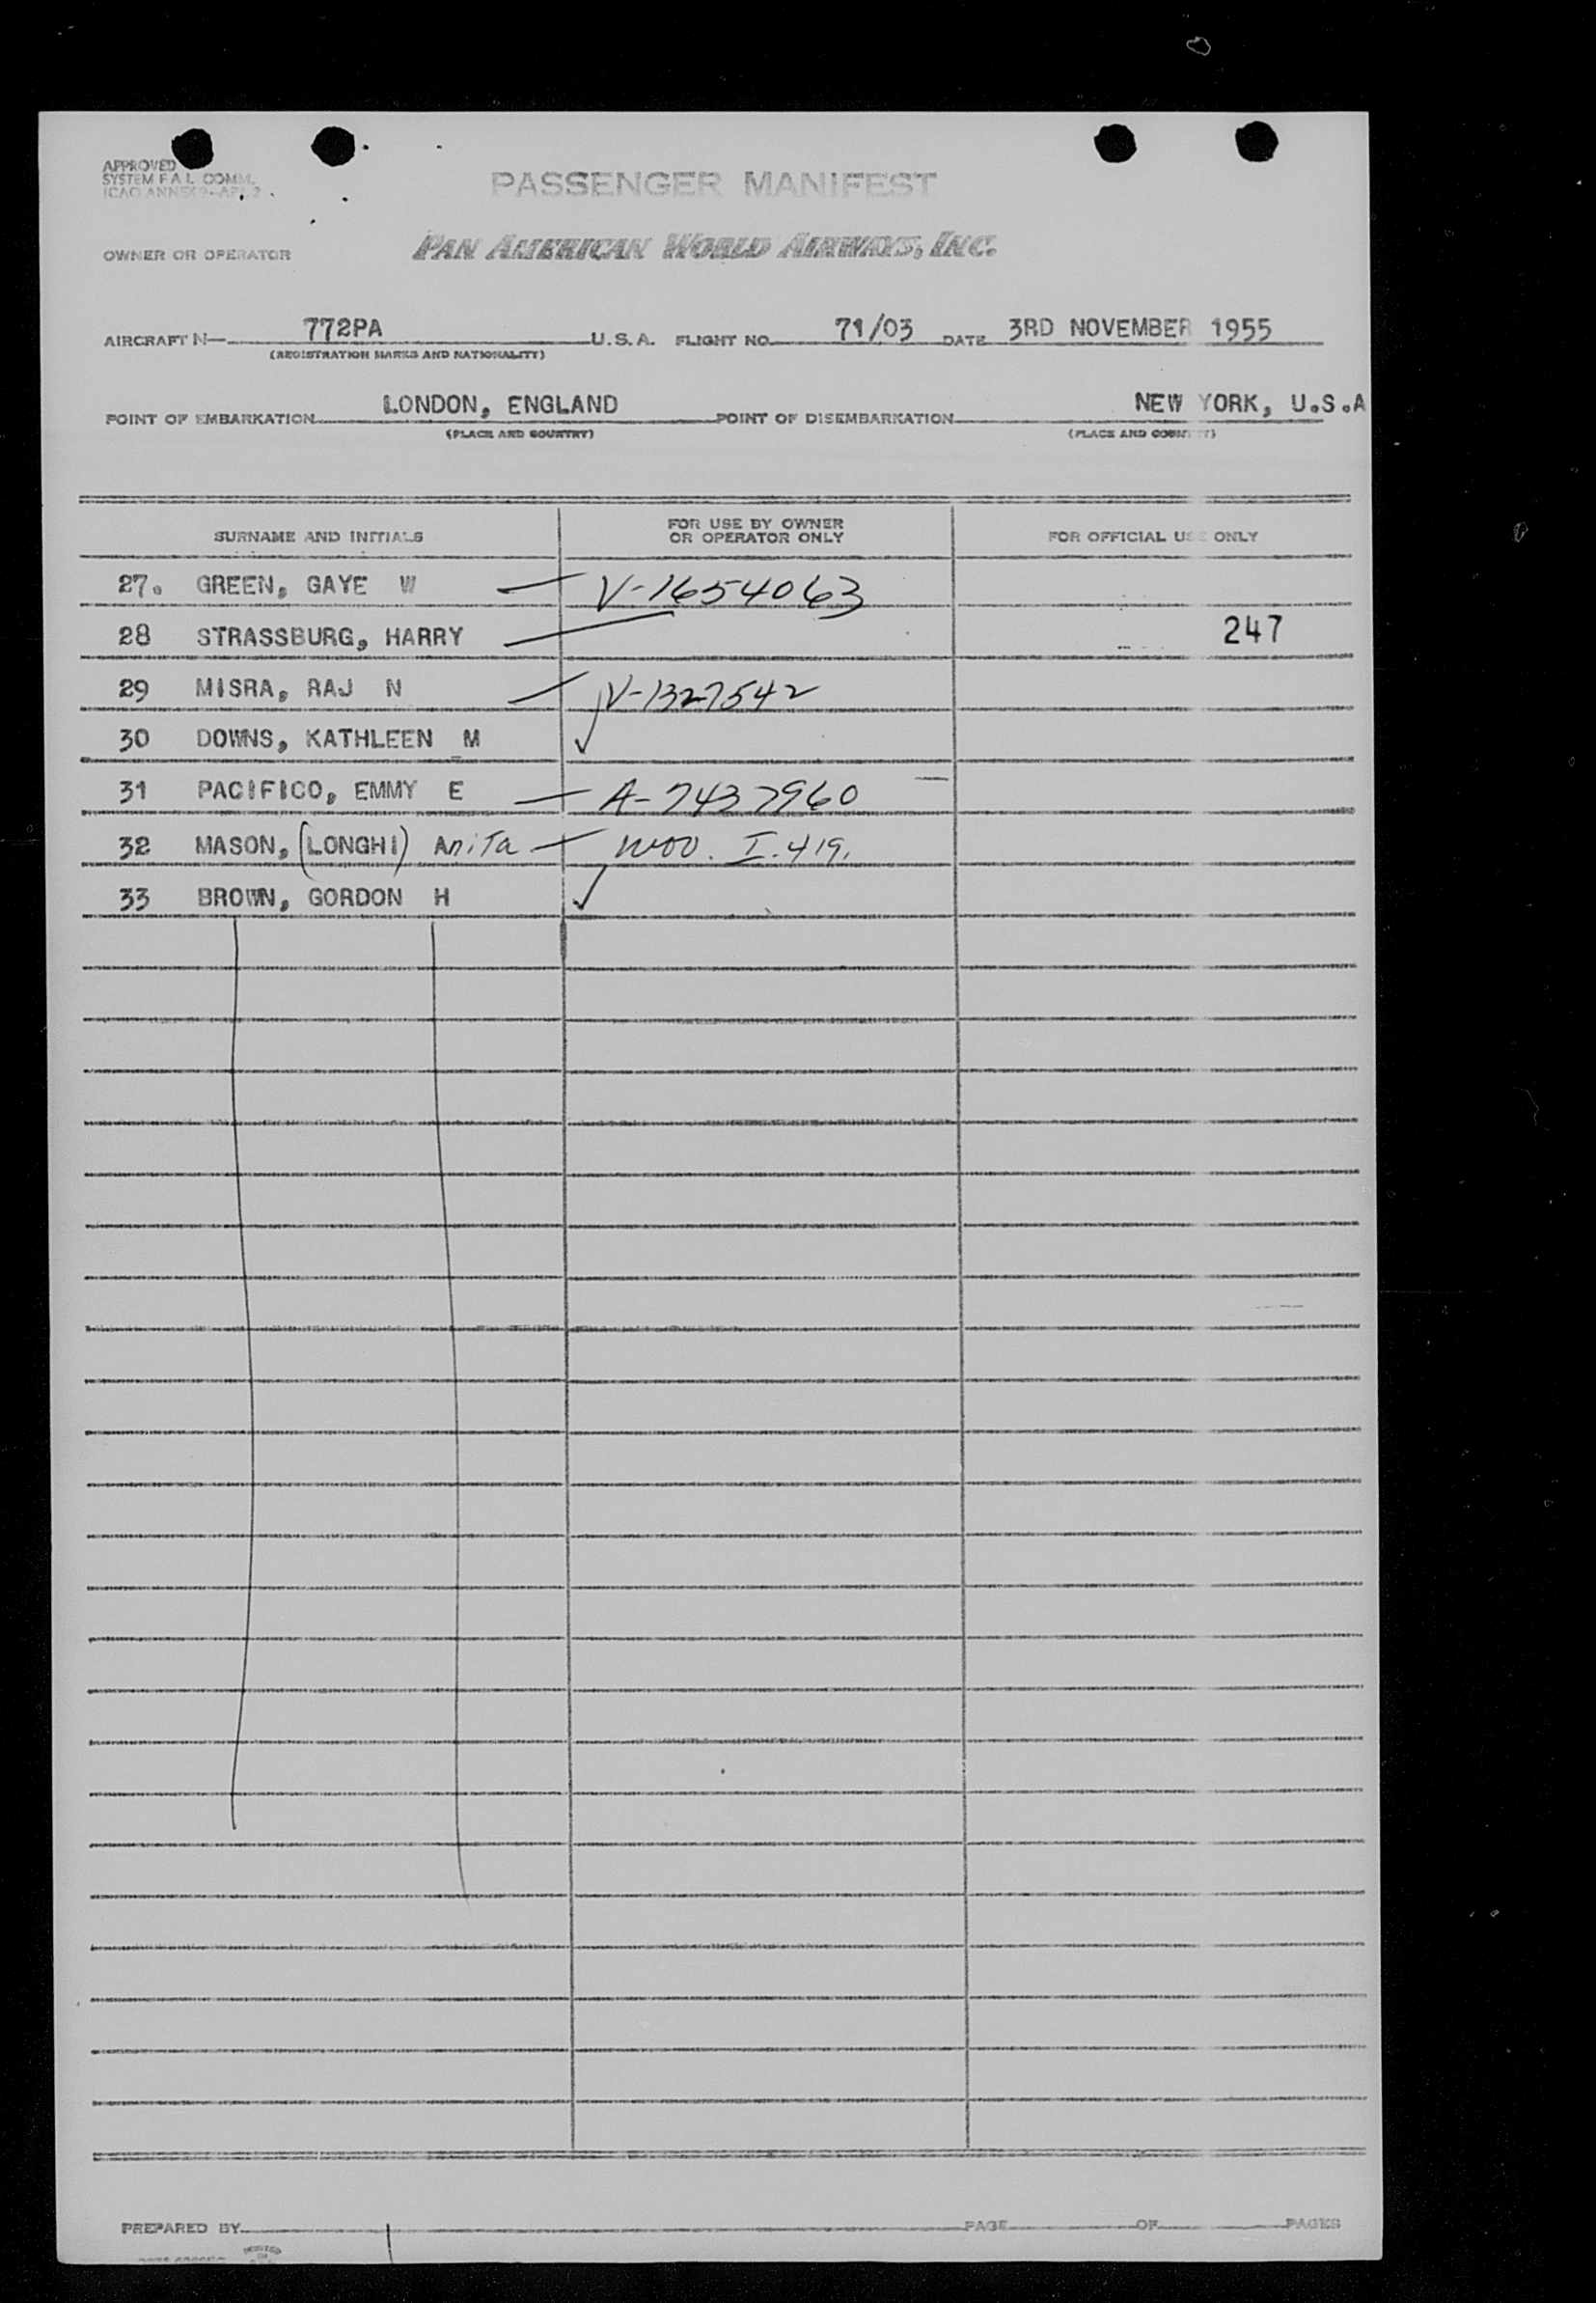 APPROVED
SYSTEM F.A.L. COMM.
PASSENGER MANIFEST
OWNER OR OPERATOR PAN AMERICAN WORLD AIRWAYS, INC.
AIRCRAFT N— 772PA U.S.A. FLIGHT NO. 71/03 DATE 3RD NOVEMBER 1955
(REGISTRATION MARKS AND NATIONALITY)
POINT OF EMBARKATION LONDON, ENGLAND POINT OF DISEMBARKATION NEW YORK, U.S.A
(PLACE AND COUNTRY) (PLACE AND COUNTRY)
SURNAME AND INITIALS FOR USE BY OWNER OR OPERATOR ONLY FOR OFFICIAL USE ONLY
27. GREEN, GAYE W — V-1654063
28 STRASSBURG, HARRY — 247
29 MISRA, RAJ N — V-1327542
30 DOWNS, KATHLEEN M ✓
31 PACIFICO, EMMY E — A-7437960
32 MASON, (LONGHI) Anita — I.419.
33 BROWN, GORDON H ✓
PREPARED BY PAGE OF PAGES